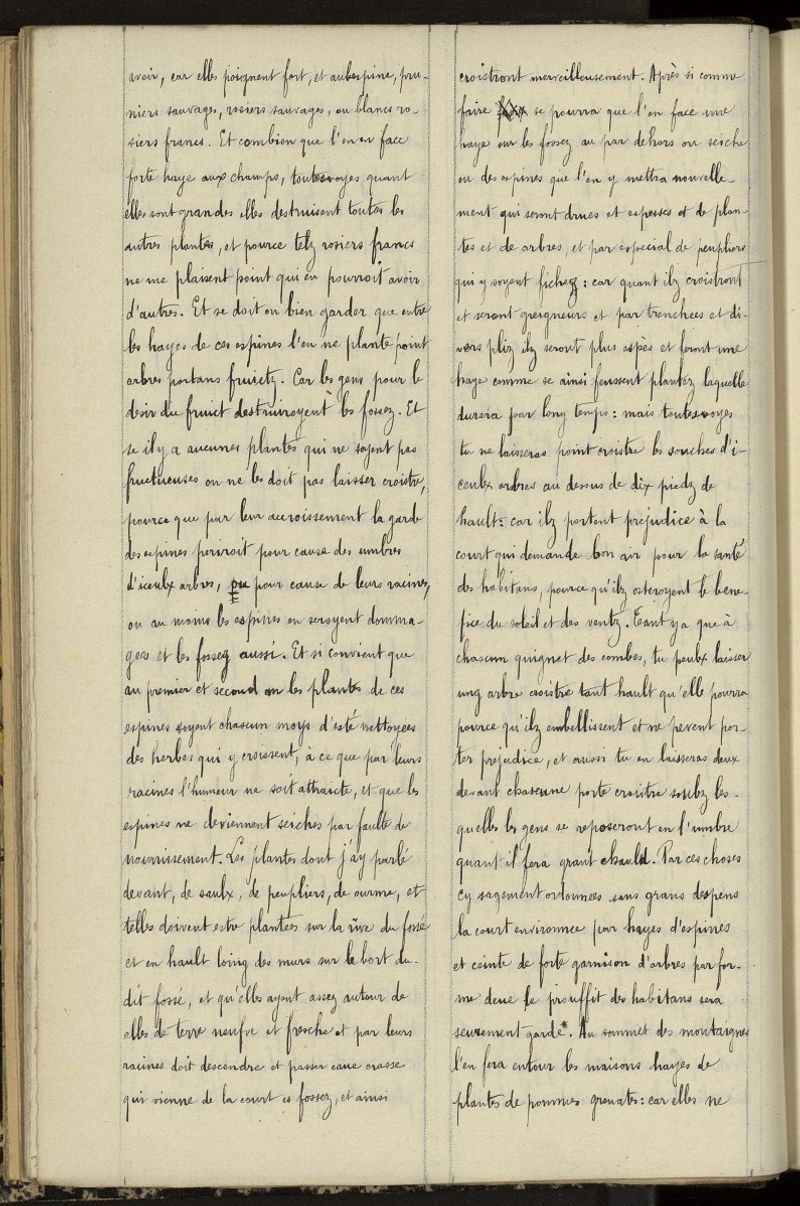 avoir, car elles poignent fort, et aubespine, pru-
niers sauvages, rosiers sauvages, ou blancs ro-
siers francs. Et combien que l'en en face
forte haye aux champs, toutesvoyes quant
elles sont grandes elles destruisent toutes les
autres plantes, et pource telz rosiers francs
ne me plaisent point qui en pourroit avoir
d'autres. Et se doit on bien garder que entre
les hayes de ces espines l'en ne plante point
arbres portans fruictz. Car les gens pour le
desir du fruict destruiroyent les fossez. Et
se il y a aucunes plantes qui ne soyent pas
fructueuses on ne les doit pas laisser croistre,
pource que pour leur accroissement la garde
des espines periroit pour cause des umbres
d'iceulx arbres, ou pour cause de leurs racines,
ou au moins les espines en seroyent domma-
gees et les fossez aussi. Et si convient que
au premier et second an les plantes de ces
espines soyent chascun moys d'esté nettoyees
des herbes qui y croissent, à ce que par leurs
racines l'humeur ne soit attraicte, et que les
espines ne deviennent seiches par faulte de
nourrissement. Les plantes dont j'ay parlé
devant, de saulx, de peupliers, de ourme, et
telles doivent estre plantées sur la rive du fossé
et en hault loing des murs sur le bort du-
dit fossé, et qu'elles ayent assez autour de
elles de terre neufve et fresche et par leurs
racines doit descendre et passer eaue crasse
qui vienne de la court es fossez, et ainsi
croistront merveilleusement. Après si comme
faire se pourra que l'en face une
haye sur les fossez au par dehors ou seiche
ou des espines que l'en y mettra nouvelle-
ment qui seront drues et espesses et de plan-
tes et de arbres, et par especial de peupliers
qui y soyent fichez : car quant ilz croistront
et seront greigneurs et par trenchees et di-
vers pliz ilz seront plus espes et feront une
haye comme se ainsi feussent plantez laquelle
durera par long temps : mais toutesvoyes
tu ne laisseras point croistre les souches d'i-
ceulx arbres au dessus de dix piedz de
hault : car ilz portent prejudice à la
court qui demande bon air pour la santé
des habitans, pource qu'ilz osteroyent le bene-
fice du soleil et des ventz. Tant y a que à
chascun quignet des combes, tu peulx laisser
ung arbre croistre tant hault qu'elle pourra
pource qu'ilz embellissent et ne pevent por-
ter prejudice, et aussi tu en laisseras deux
devant chascune porte croistre soubz les-
quelles les gens se reposeront en l'umbre
quant il fera grant chauld. Par ces choses
cy sagement ordonnees sans grans despens
la court environnee par hayes d'espines
et ceinte de forte garnison d'arbres par for-
me deue le prouffit des habitans sera
seurement gardé. Au sommet des montaignes
l'en fera entour les maisons hayes de
plantes de pommes grenates : car elles ne